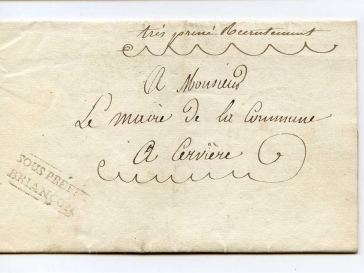 très pressé Recrutement
A Monsieur
Le maire de la Commune
A Cervière
SOUS PRÉFET
BRIANÇON